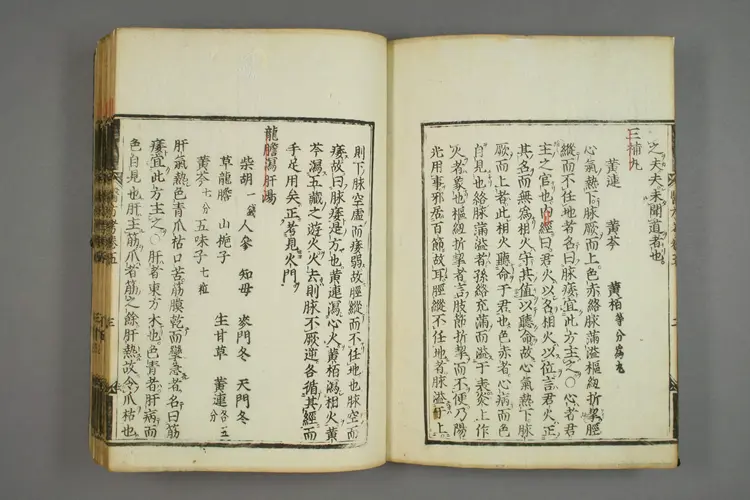 之夫夫未聞道者也
三補丸
黄連 黄芩 黄栢等分爲丸
心氣熱下脉厥而上色赤絡脉滿溢樞紐折挈脛
縱而不任地者名曰脉痿宜此方主之○心者君
主之官也內經曰君火以名相火以位言君火正
其名而無爲相火守其位以聽命故心氣熱下脉
厥而上者此相火聽命于君也色赤者心病而色
自見也絡脉滿溢者孫絡充滿而溢于表炎上作
火者象也樞紐折挈者言肢節折挈而不便乃陽
光用事邪居百節故耳脛縱而不任地者脉溢于上
則下脉空虛而痿弱故脛縱而不任地也脉空而
痿故曰脉痿是方也黄連瀉心火黄栢瀉相火黄
芩瀉五臟之遊火火去則脉不厥逆各循其經而
手足用矣正考見火門
龍膽瀉肝湯
柴胡一錢 人參 知母 麥門冬 天門冬
草龍膽 山梔子 生甘草 黄連各五分
黄芩七分 五味子七粒
肝氣熱色青爪枯口苦筋膜乾而攣急者名曰筋
痿宜此方主之○肝者東方木也色青者肝病而
色自見也肝主筋爪者筋之餘肝熱故令爪枯也
醫方考卷五
三